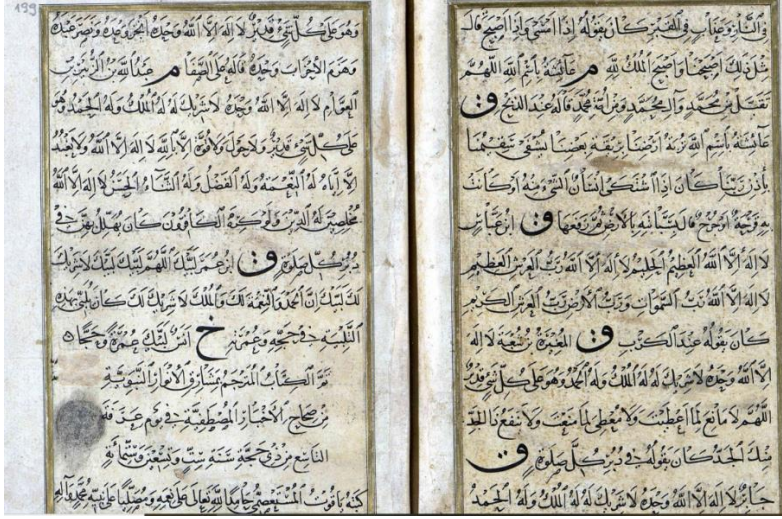 فى النار وعذاب فى القبر كان يقوله إذا أمسى وإذا أصبح قال
مثل ذلك أصبحنا وأصبح الملك لله م عائشة بأسم الله اللهم
تقبل من محمد وآل محمد ومن أمة محمد قاله عند الذبح ق
عائشة بأسم الله تربة أرضنا بريقة بعضنا يشفى سقيمنا
بإذن ربنا كان إذا اشتكى إنسان الشئ منه أو كانت
به قرحة أو جرح قال بسبابته بالأرض ثم رفعها ق ابن عباس
لا إله إلا الله العظيم الحليم لا إله إلا الله رب العرش العظيم
لا إله إلا الله رب السموات ورب الأرض رب العرش الكريم
كان يقوله عند الكرب ق المغيرة بن شعبة لا إله
إلا الله وحده لا شريك له له الملك وله الحمد وهو على كل شئ قدير
اللهم لا مانع لما أعطيت ولا معطى لما منعت ولا ينفع ذا الجد
منك الجد كان يقوله فى دبر كل صلوة ق
جابر لا إله إلا الله وحده لا شريك له له الملك وله الحمد
199
وهو على كل شئ قدير لا إله إلا الله وحده أنجز وعده ونصر عبده
وهزم الأحزاب وحده قاله على الصفا م عبد الله بن الزبير بن
العوام لا إله إلا الله وحده لا شريك له له الملك وله الحمد وهو
على كل شئ قدير ولا حول ولا قوة إلا بالله لا إله إلا الله ولا نعبد
إلا إياه له النعمة وله الفضل وله الثناء الحسن لا إله إلا الله
مخلصين له الدين ولو كره الكافرون كان يهلل بهن فى
دبر كل صلوة ق ابن عمر لبيك اللهم لبيك لبيك لا شريك
لك لبيك إن الحمد والنعمة لك والملك لا شريك لك كان يلبى بهذه
التلبية فى حجه وعمرته خ أنس لبيك عمرة وحجا
تم الكتاب المترجم بمشارق الأنوار النبوية
من صحاح الأخبار المصطفية فى يوم عرفة
التاسع من ذى حجة سنة ست وتسعين وستمائة
كتبه ياقوت المستعصمى حامدا لله تعالى على نعمه ومصليا على نبيه محمد وآله